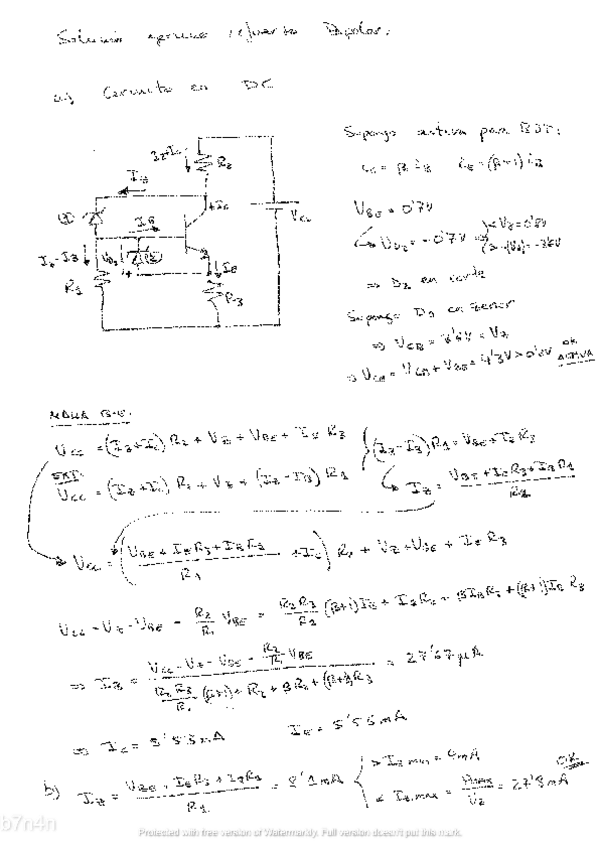 Solución ejercicio refuerzo Bipolar.
a) Circuito en DC
Supongo activa para BJT:
ic = β iB iE = (β+1) iB
VBE = 0'7V
⇒ D2 en corte
Supongo D1 en zener
⇒ VCE = VCB + VBE = 4'3V > 0'2V OK ACTIVA
R2
Ic
VCC
IB
R1
IE
R3
MALLA B-E:
VCC = (IZ+IC) R2 + VZ + VBE + IE R3
(IZ-IB) R1 = VBE + IE R3
EXT:
VCC = (IZ+IC) R2 + VZ + (IZ-IB) R1
IZ = VBE + IE R3 + IB R1 / R1
VCC = (VBE + IE R3 + IB R1 / R1 + IC) R2 + VZ + VBE + IE R3
VCC - VZ - VBE - R2/R1 VBE = R2 R3/R1 (β+1) IB + IB R2 + β IB R2 + (β+1) IB R3
⇒ IB = VCC - VZ - VBE - R2/R1 VBE / R2 R3/R1 (β+1) + R2 + β R2 + (β+1) R3 = 27'67 μA
⇒ IC = 5'53 mA IE = 5'56 mA
b) IZ = VBE + IE R3 + IB R1 / R1 = 8'1 mA
> IZ min = 4mA
< IZ max = Pmax / VZ = 27'8 mA OK
b7n4n
Protected with free version of Watermarkly. Full version doesn't put this mark.